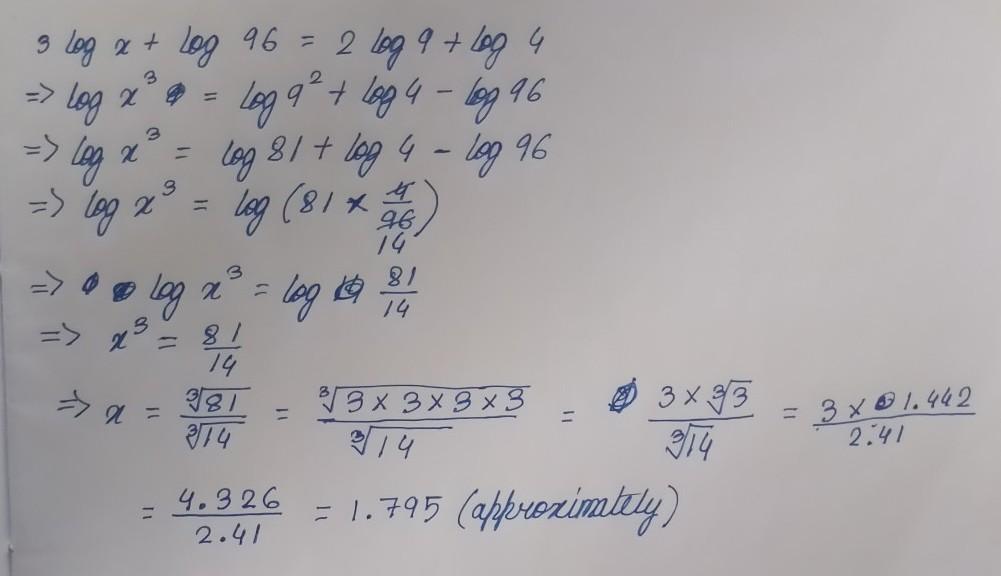 3 log x + log 96 = 2 log 9 + log 4
=> log x³ = log 9² + log 4 - log 96
=> log x³ = log 81 + log 4 - log 96
=> log x³ = log (81 × 4/96)
14
=> log x³ = log 81/14
=> x³ = 81/14
=> x = ∛81/∛14 = ∛(3 × 3 × 3 × 3)/∛14 = 3 × ∛3/∛14 = 3 × 1.442/2.41
= 4.326/2.41 = 1.795 (approximately)